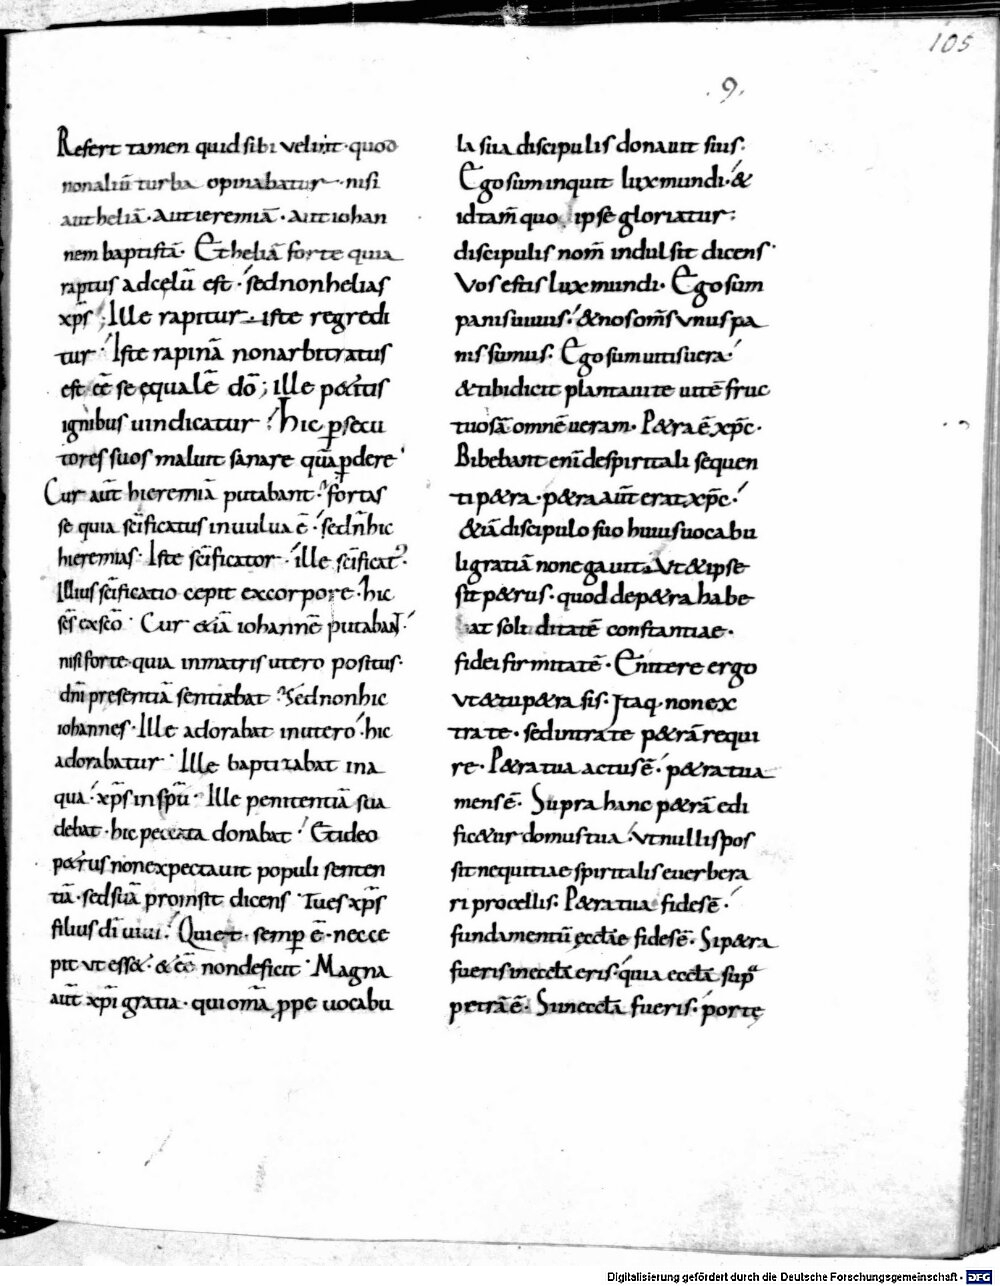 105
.9.
Refert tamen quid sibi velint·quod
nonaliū turba opinabatur·nisi
aut heliā·Aut ieremiā·Aut iohan
nem baptistā·Et heliā forte quia
raptus adcelū est·sed non helias
xp̄s; Ille rapitur·iste regredi
tur·Iste rapinā non arbitratus
est ēē se equalē dō; ille p&itis
ignibus uindicatur·hic ꝑsecu
tores suos maluit sanare quā ꝑdere·
Cur aūt hieremiā putabant·fortas
se quia sc̄ificatus in uulua ē·sed n̄ hic
hieremias·Iste sc̄ificator·ille sc̄ificat᷒·
Illius sc̄ificatio cepit ex corpore·hic
sēs ex sc̄o·Cur &iā iohannē putabaNT·
nisi forte·quia in matris utero positus·
dn̄i presentiā sentiebat·Sed non hic
iohannes·Ille adorabat in utero·hic
adorabatur·Ille baptizabat in a
qua·xp̄s in sp̄u·Ille penitentiā sua
debat·hic peccata donabat·Et ideo
p&rus non expectauit populi senten
tiā·sed suā promsit dicens·Tu es xp̄s
filius dī uiui·Qui est·semꝑ ē·nec ce
pit vt ess&·& ēē non deficit·Magna
aūt xp̄i gratia·qui om̄a ꝓpe uocabu
la sua discipulis donauit suis:
Ego sum inquit lux mundi·&
id tam̄ quo ipse gloriatur:
discipulis nom̄ indulsit dicens·
Vos estis lux mundi·Ego sum
panis uiuus·& nos om̄s vnus pa
nis sumus·Ego sum uitis uera·
& tibi dicit plantaui te uitē fruc
tuosā omnē ueram·P&ra ē xp̄c·
Bibebant enī de spiritali sequen
ti p&ra·p&ra aūt erat xp̄c·
&iā discipulo suo huius uocabu
li gratiā non negauit·Vt & ipse
sit p&rus·quod de p&ra habe
at solidi tatē constantiae·
fidei firmitatē·Enitere ergo
vt & tu p&ra sis·Itaq· non ex
tra te·sed intra te p&rā requi
re·P&ra tua actus ē·p&ra tua
mens ē·Supra hanc p&rā edi
fic&ur domus tua·vt nullis pos
sit nequitiae spiritalis euerbera
ri procellis·P&ra tua fides ē·
fundamentū ęcclāe fides ē·Si p&ra
fueris in eccla eris·quia eccla supᵃ
petrā ē·Si in eccla fueris·portę
Digitalisierung gefördert durch die Deutsche Forschungsgemeinschaft - DFG